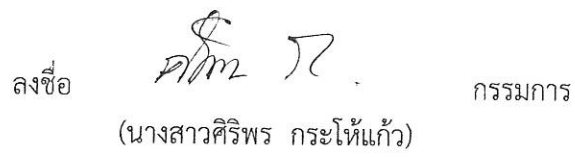 ลงชื่อ กรรมการ
(นางสาวศิริพร กระโห้แก้ว)